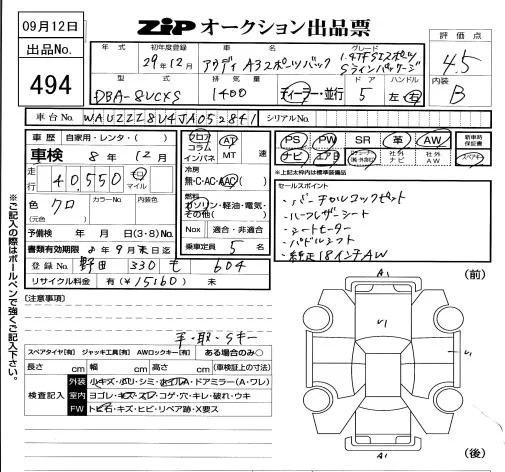 09月12日
出品No.
494
ZIP オークション出品票
評価点
4.5
内装
B
年式
初年度登録
29年12月
車名
アウディ A3スポーツバック
グレード
1.4TFSIスポーツ
Sラインパッケージ
型式
DBA-8VCXS
排気量
1400
ディーラー・並行
ドア
5
ハンドル
左・右
車台No.
WAUZZZ8V4JA052841
シリアルNo.
車歴 自家用・レンタ・( )
車検 8年12月
走行
40,550
キロ
マイル
色
クロ
(元色)
カラーNo.
内装色
予備検 年 月 日(3・8)No.
書類有効期限 8年9月末日迄
登録No. 野田 330 も 604
リサイクル料金 有(¥15160) 未
フロア
コラム
インパネ
AT
MT
速
冷房
無・C・AC・AAC
燃料
ガソリン・軽油・電気・
その他( )
Nox 適合・非適合
乗車定員 5 名
PS PW SR 革 AW
ナビ エアB 社外ナビ 社外AW
新車時保証書
スペアキー
※上記太枠内は標準装備品
セールスポイント
・バーチャルコックピット
・ハーフレザーシート
・シートヒーター
・パドルシフト
・純正18インチAW
[注意事項]
手・取・Sキー
スペアタイヤ[有] ジャッキ工具[有] AWロックキー[有] ある場合のみ○
長さ cm 幅 cm 高さ cm (車検証上の寸法)
検査記入
外装 小キズ・ボリ・シミ・ホイルA・ドアミラー(A・ワレ)
室内 ヨゴレ・キズ・スレ・コゲ・穴・キレ・破れ・ウキ
FW トビ石・キズ・ヒビ・リペア跡・X要ス
※ご記入の際はボールペンで強くご記入下さい。
(前)
A1
V1
V1
A1
(後)